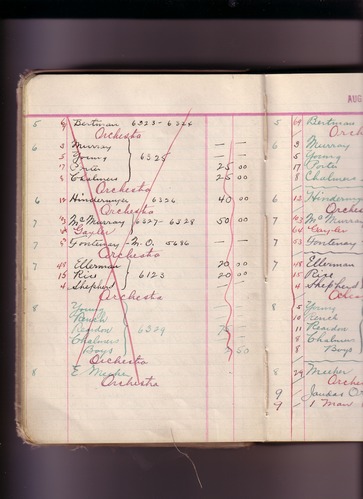 AUG
5 6 Bertman 6323-6324
Orchestra
6 3 Murray — —
5 Young 6325 — —
17 Porter 25 00
8 Chalmers 25 00
Orchestra
6 12 Hinderwyer 6326 40 00
Orchestra
7 43 McMurray 6327-6328 50 00
64 Gayler
Orchestra
7 53 Fontenay M.O. 5686 — —
Orchestra
7 48 Ellerman 20 00
15 Rice 6123 20 00
4 Shepherd
Orchestra
8 Young
Rench
Reardon 6329
Chalmers
Boys
Orchestra
8 E. Meeker
Orchestra
5 64 Bertman
Orchest
6 3 Murray
5 Young
17 Porter
8 Chalmers
6 12 Hinderwy
Orches
7 43 McMurray
64 Gayler
7 53 Fontenay
7 48 Ellerman
15 Rice
4 Shepherd
Orches
8 5 Young
10 Rench
11 Reardon
8 Chalmers
8 Boys
8 29 Meeker
Orche
9
9 1 Man